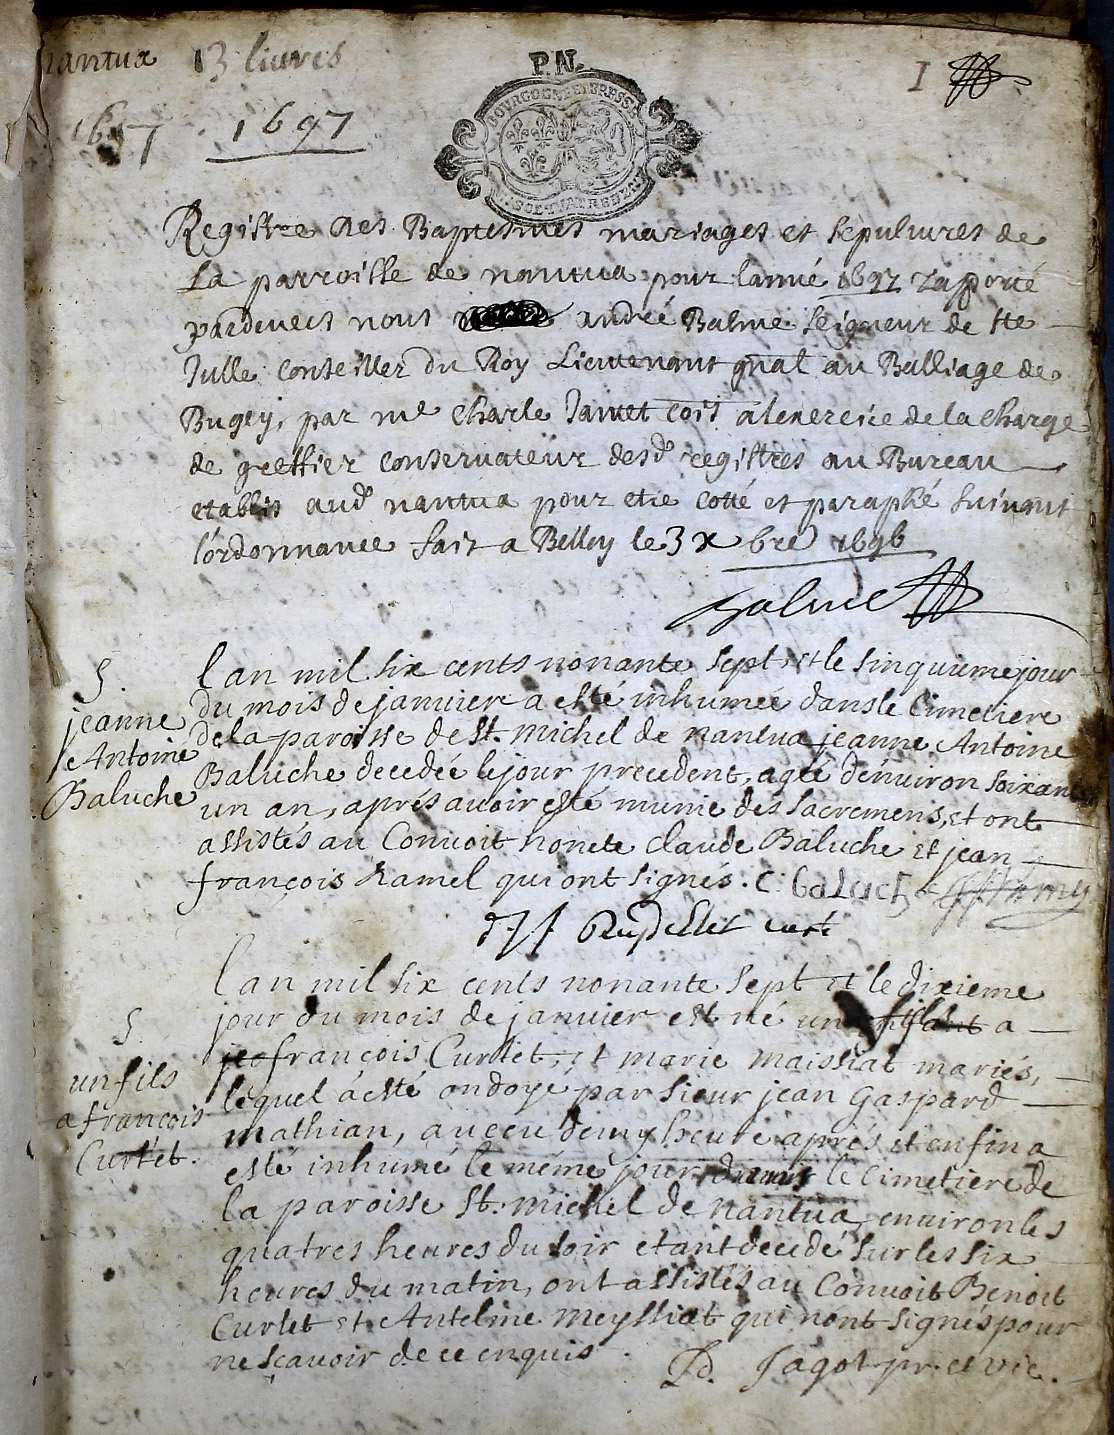 nantua 13 liures
P.N.
I
1697 1697
BOURGOGNE ET BRESSE
Registre des Baptesmes mariages et sepultures de
La parroisse de nantua pour lanné 1697 raporté
pardeuers nous andré Balme seigneur de ste
Julle conseiller du Roy Lieutenant gnal au Balliage de
Bugey, par me Charle Jantet cois a lexercice de la charge
de greffier conseruateur desd. registres au Bureau
establis aud nantua pour etre cotté et paraphé suiuant
l'ordonnance fait a Belley le 3 x bre 1696
Balme
5.
jeanne
Antoine
Baluche
lan mil six cents nonante sept et le sinquieme jour
du mois de januier a esté inhumée dans le Cimetiere
de la paroisse de St. michel de nantua jeanne Antoine
Baluche decedée le jour precedent, agée d'enuiron soixante
un an, aprés auoir esté munie des sacremens, et ont
assistés au Conuoit honete claude Baluche et jean
françois hamel qui ont signés. C. baluch
Rudellet curé
5
un fils
a françois
Curtet.
lan mil six cents nonante sept et le dixieme
jour du mois de januier est né un fils a
françois Curtet, et marie maissiat mariés,
lequel à esté ondoyé par sieur jean Gaspard
mathian, a uecu demy heure aprés et enfin a
esté inhumé le méme jour dans le Cimetiere de
la paroisse St. michel de nantua, enuiron les
quatres heures du soir etant decedé sur les six
heures du matin, ont assistés au Conuoit Benoit
Curtet et Antelme meyssiat qui n'ont signés pour
ne sçauoir de ce enquis.
D. Jagot pr. et vic.